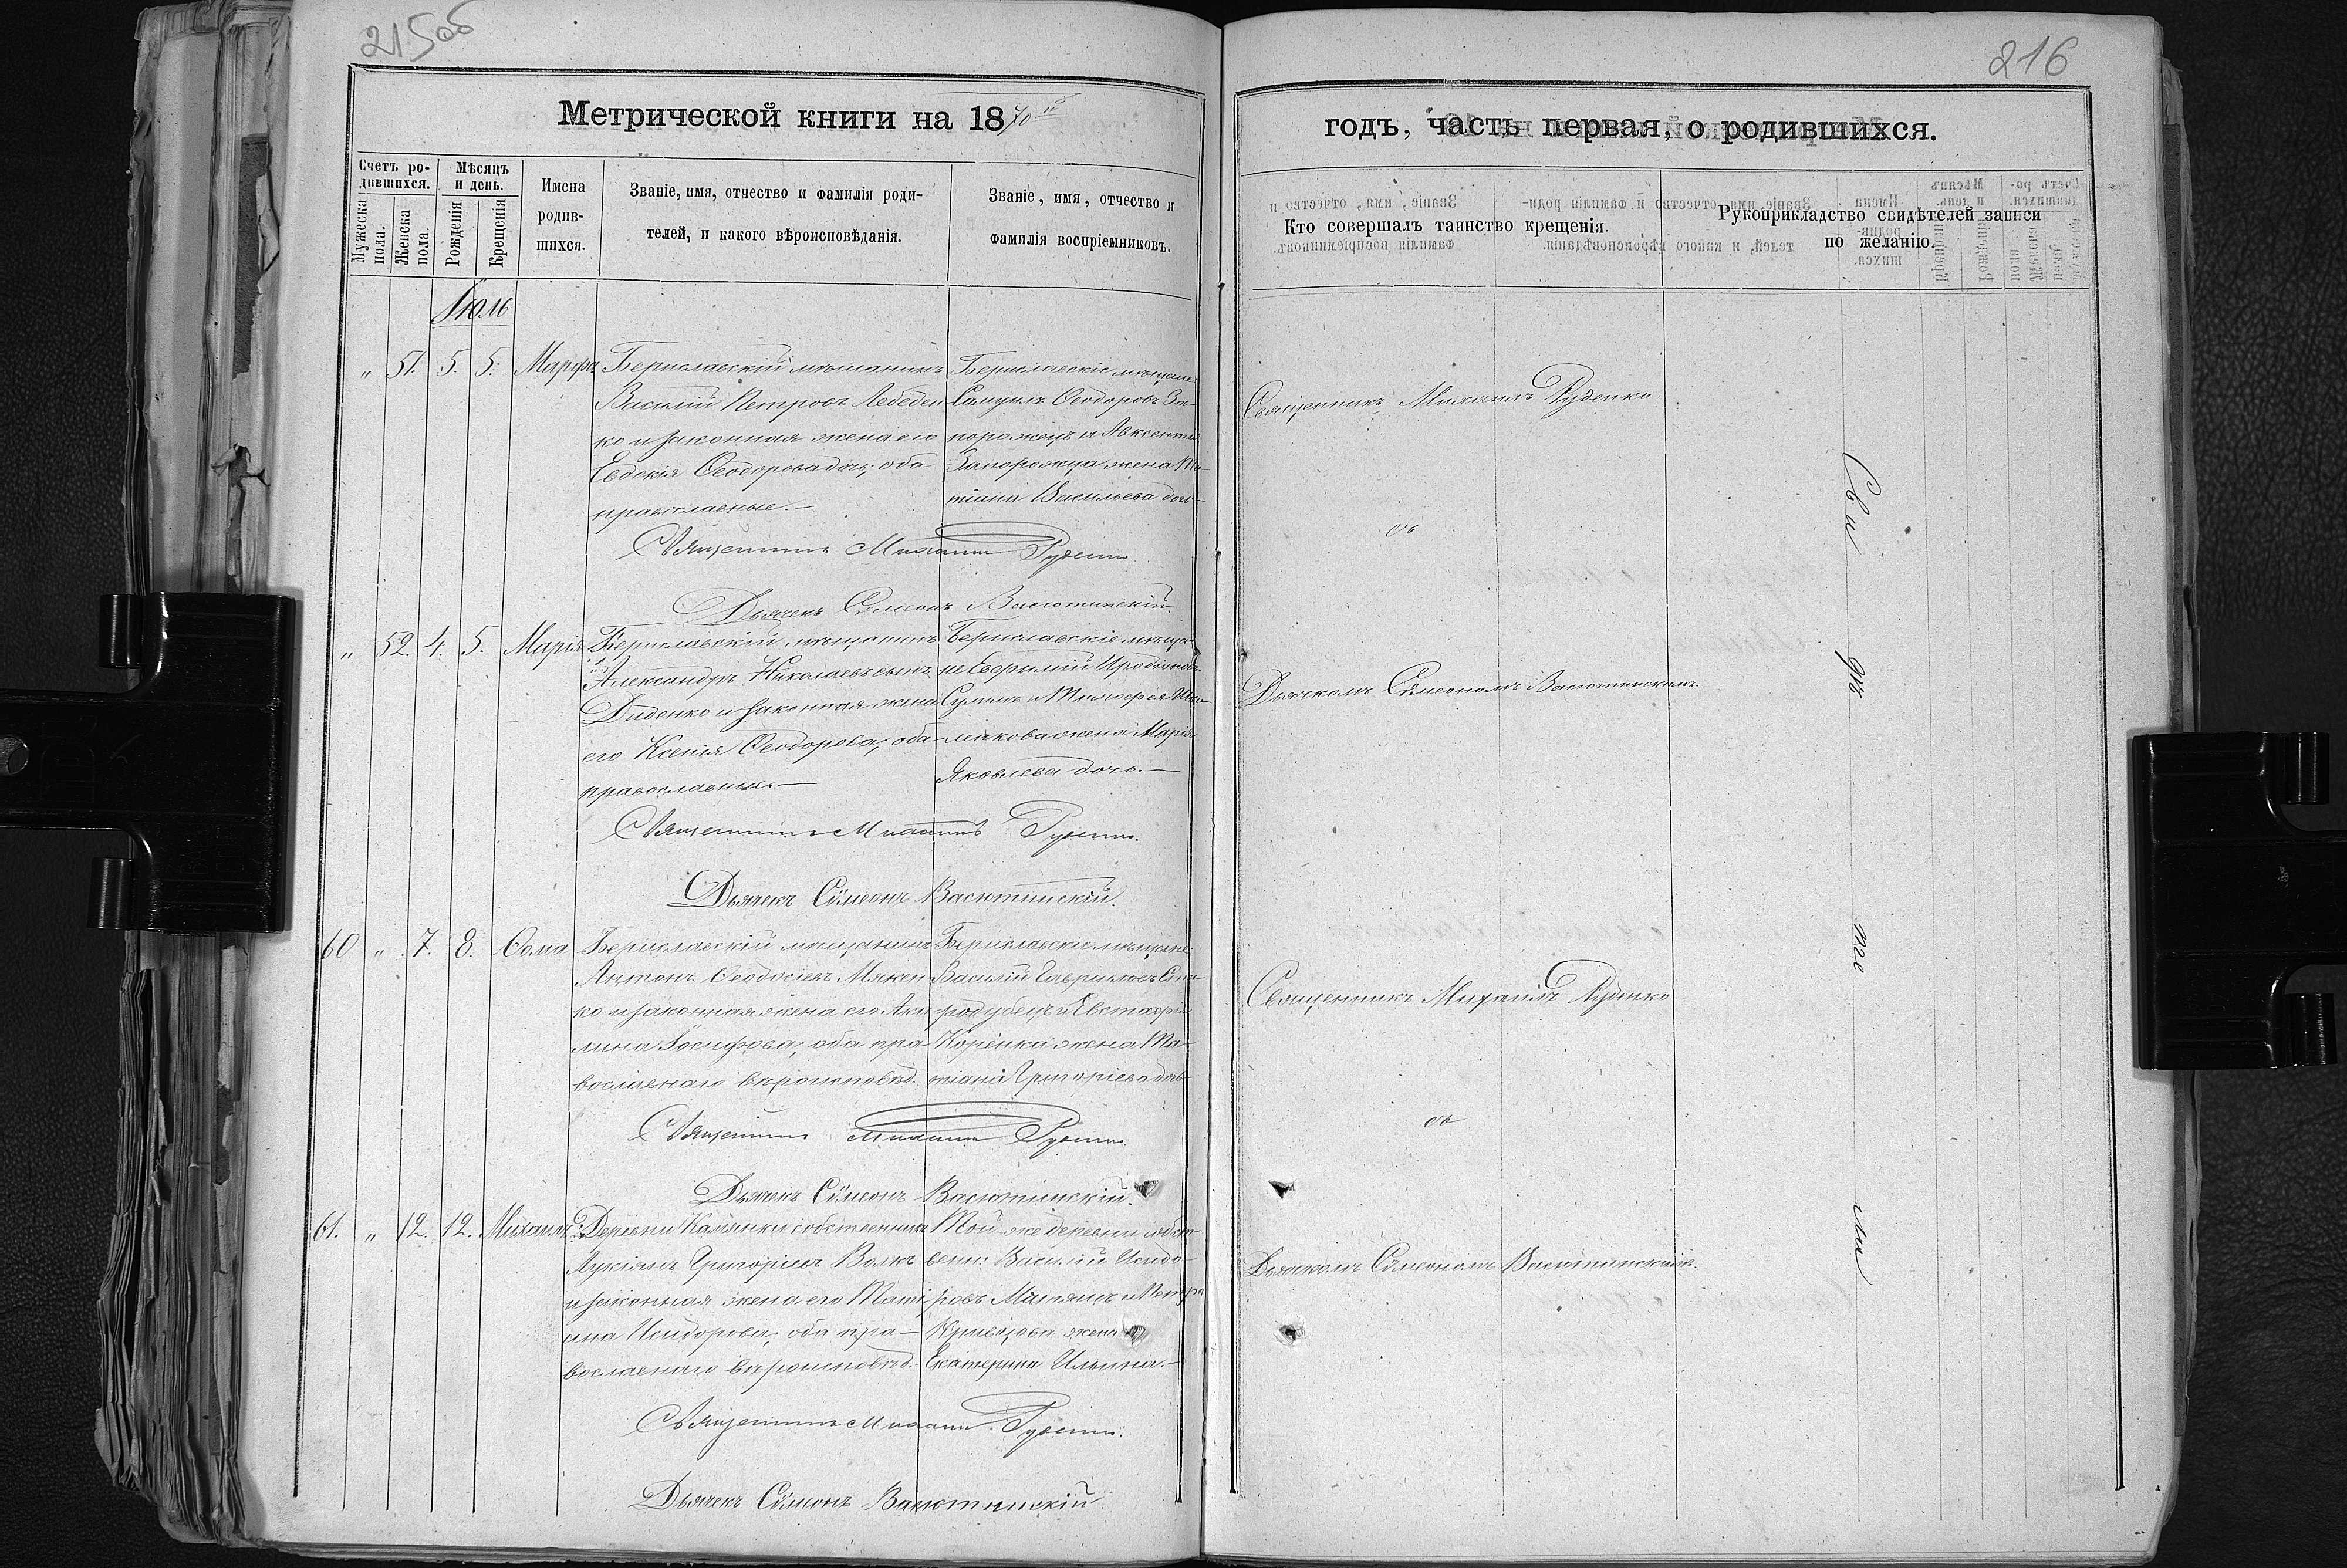 215об
216
Метрической книги на 1870й
годъ, часть первая, о родившихся.
Счетъ ро-
дившихся.
Мужеска пола.
Женска пола.
Мѣсяцъ
и день.
Рожденія
Крещенія
Имена
родив-
шихся.
Званіе, имя, отчество и фамилія роди-
телей, и какого вѣроисповѣданія.
Званіе, имя, отчество и
фамилія воспріемниковъ.
Кто совершалъ таинство крещенія.
Рукоприкладство свидѣтелей записи
по желанію.
Іюль
„ 51. 5. 5. Марфа
Бериславскій мѣщанинъ
Василій Петровъ Лебеден-
ко и законная жена его
Евдокія Ѳеодорова дочь; оба
православные.—
Бериславскіе мѣщане
Самуилъ Ѳеодоровъ За-
порожецъ и Авксентія
Запорожца жена Та-
тіана Васильева дочь—
Священникъ Михаилъ Руденко
Священникъ Михаилъ Руденко
съ
Дьячекъ Сѵмеонъ Васютинскій.
„ 52. 4. 5. Марія
Бериславскій мѣщанинъ
Александръ Николаевъ сынъ
Диденко и законная жена
его Ксенія Ѳеодорова; оба
православные.—
Бериславскіе мѣща-
не Евфимій Иродіоновъ
Сулима и Тимофея
жена Марія
Яковлева дочь.—
Дьячкомъ Сѵмеономъ Васютинскимъ.
Священникъ Михаилъ Руденко.
Дьячекъ Сѵмеонъ Васютинскій.
60 „ 7. 8. Ѳома
Бериславскій мѣщанинъ
Антонъ Ѳеодосіевъ Мякен-
ко и законная жена его Аки-
лина Іосифова; оба пра-
вославнаго вѣроисповѣд.
Бериславскіе мѣщане
Василій Гавриловъ Ста-
родубецъ и Евстафія
Коріенка жена Та-
тіана Григоріева дочь—
Священникъ Михаилъ Руденко
Священникъ Михаилъ Руденко
съ
Дьячекъ Сѵмеонъ Васютинскій.
61. „ 12. 12. Михаилъ
Деревни Камянки собственникъ
Лукіянъ Григоріевъ Волкъ
и законная жена его Тать-
яна Исидорова; оба пра-
вославнаго вѣроисповѣд.
Той-же деревни собст-
венн: Василій Исидо-
ровъ и Петра
жена
Екатерина Ильина.—
Дьячкомъ Сѵмеономъ Васютинскимъ.
Священникъ Михаилъ Руденко.
Дьячекъ Сѵмеонъ Васютинскій